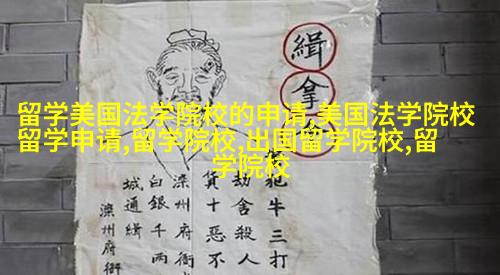 留学美国法学院校的申请,美国法学院校
留学申请,留学院校,出国留学院校,留
学院校
緝拿
犯牛三打
劫舍殺人
貨十惡不
滦州府衙
白銀千兩
城通緝
滦州府衙